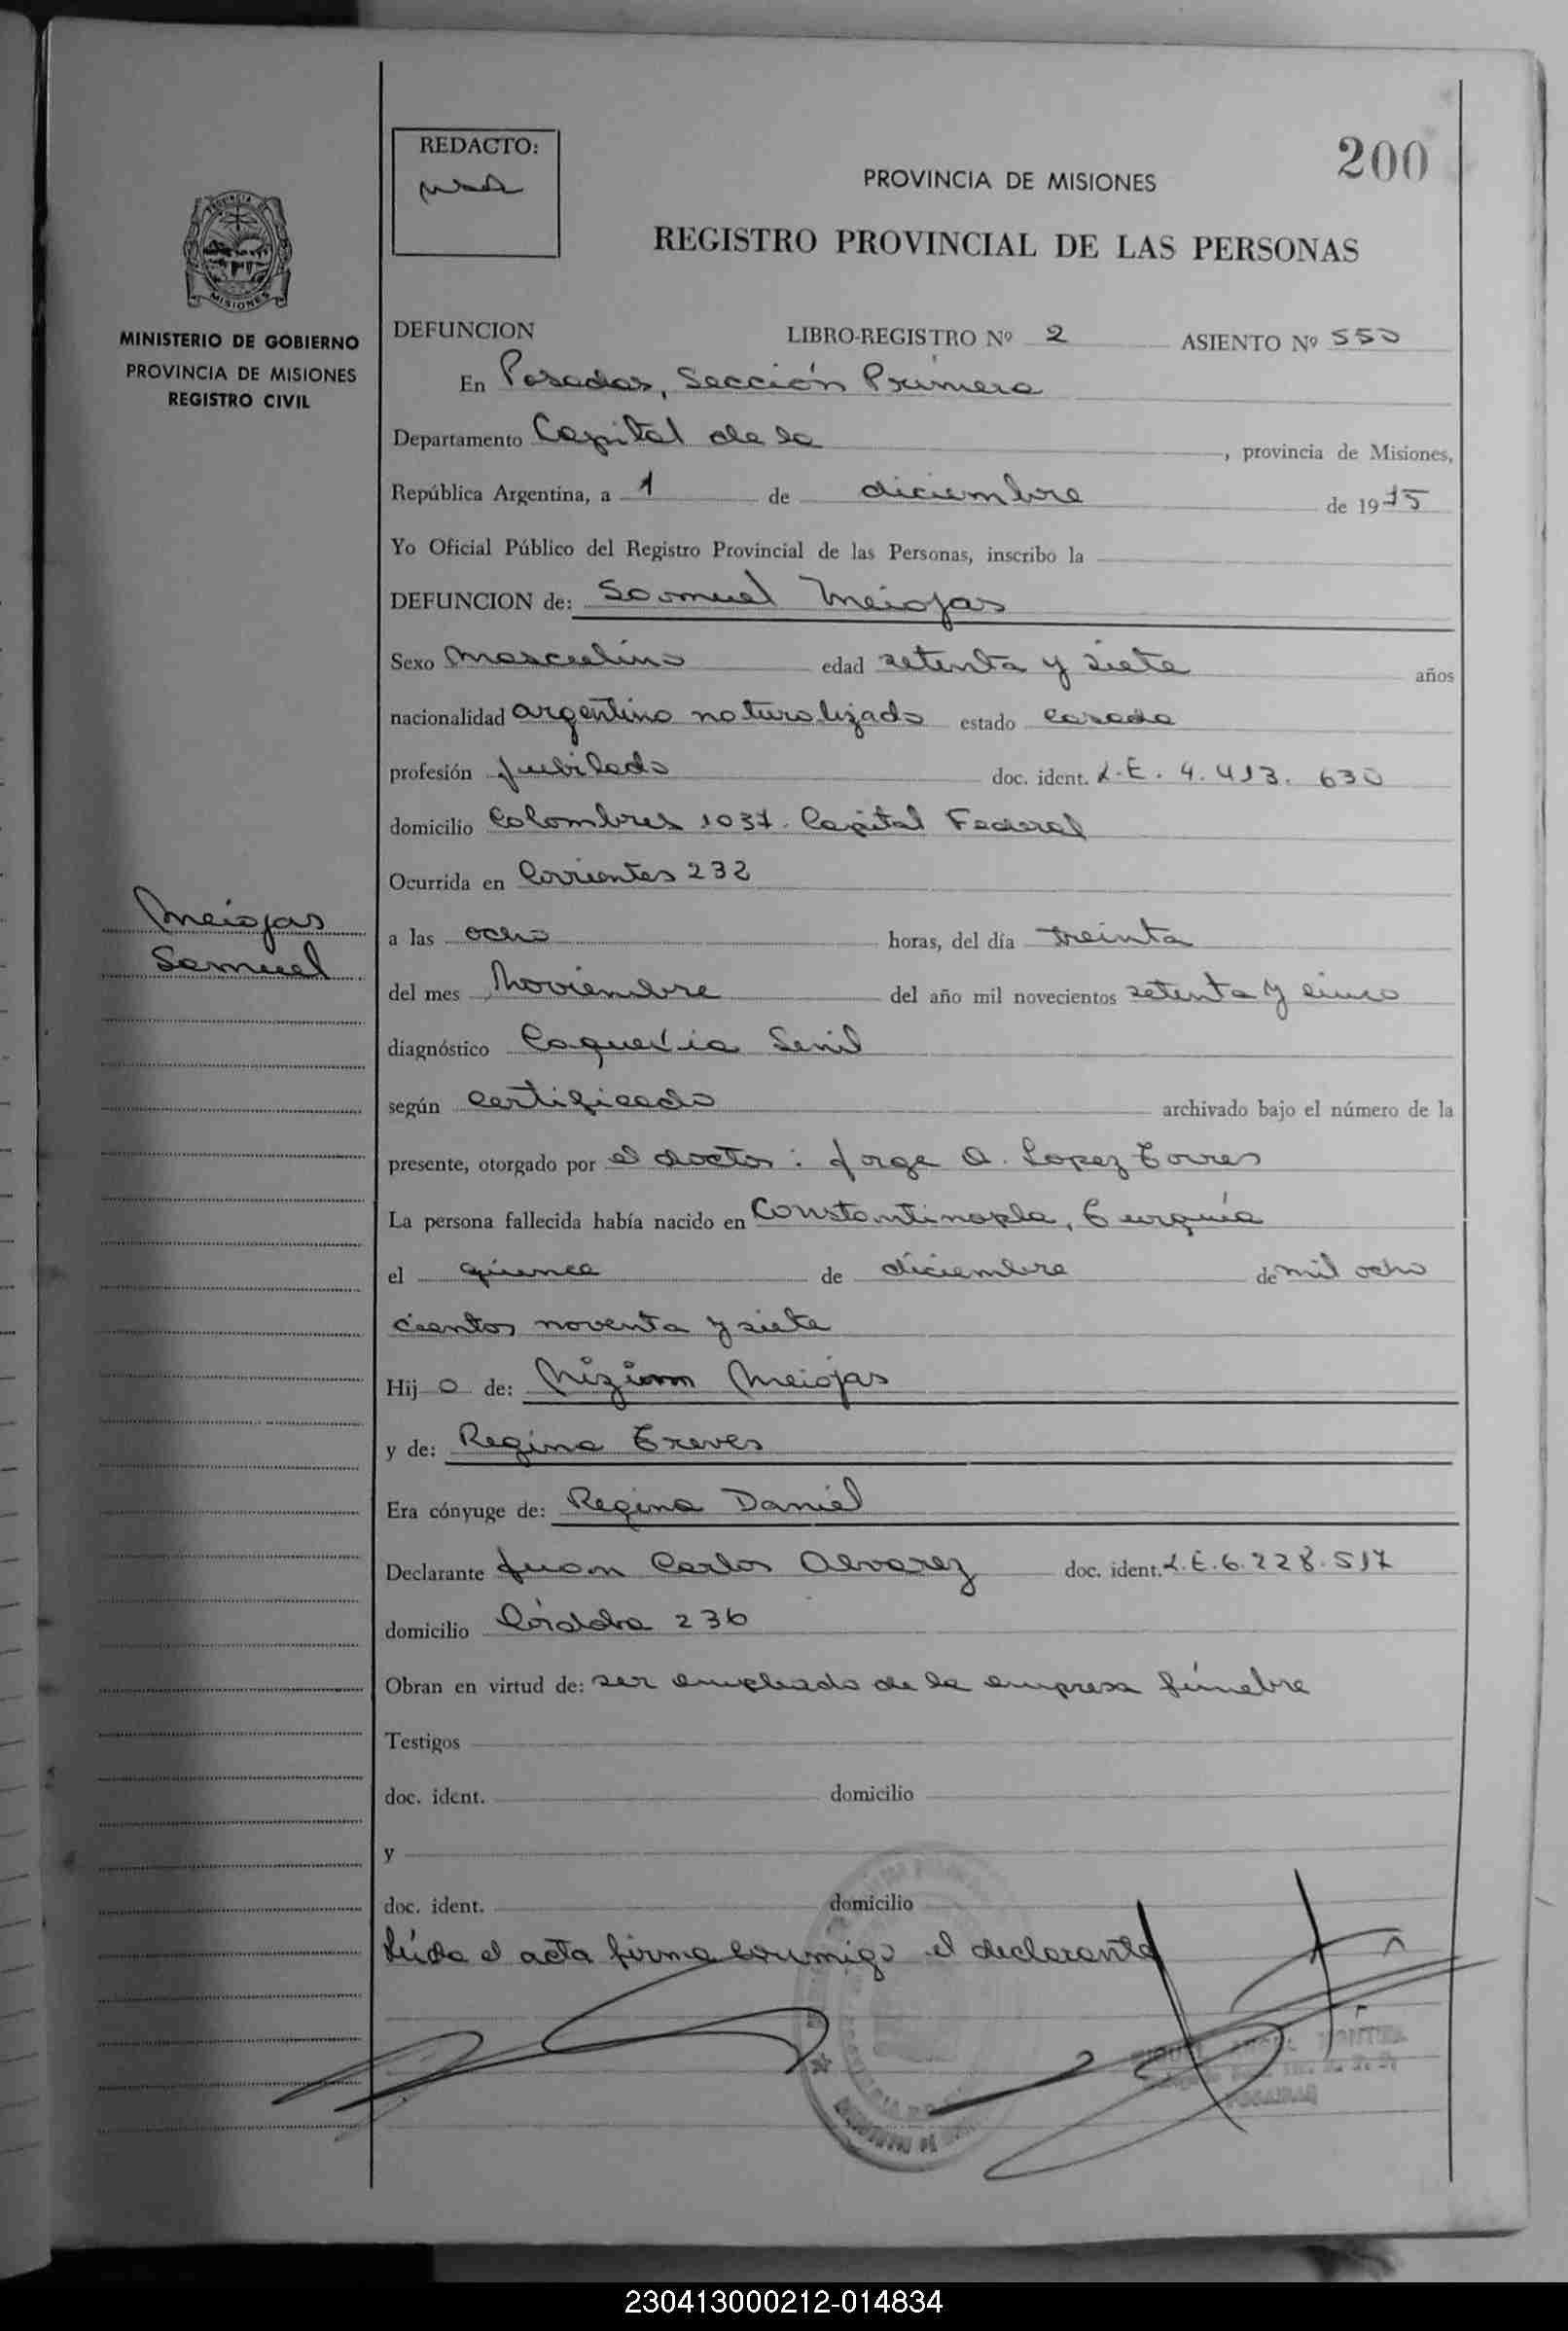 200
REDACTO:
PROVINCIA DE MISIONES
REGISTRO PROVINCIAL DE LAS PERSONAS
MINISTERIO DE GOBIERNO
PROVINCIA DE MISIONES
REGISTRO CIVIL
DEFUNCION LIBRO-REGISTRO Nº 2 ASIENTO Nº 550
En Posadas, Sección Primera
Departamento Capital de la , provincia de Misiones,
República Argentina, a 1 de diciembre de 1975
Yo Oficial Público del Registro Provincial de las Personas, inscribo la
DEFUNCION de: Samuel Meiojas
Sexo Masculino edad setenta y siete años
nacionalidad argentino naturalizado estado casado
profesión jubilado doc. ident. L.E. 4.413.630
domicilio Colombres 1037. Capital Federal
Ocurrida en Corrientes 232
Meiojas
Samuel
a las ocho horas, del día treinta
del mes Noviembre del año mil novecientos setenta y cinco
diagnóstico Caquexia Senil
según certificado archivado bajo el número de la
presente, otorgado por el doctor: Jorge A. Lopez Torres
La persona fallecida había nacido en Constantinopla, Turquía
el quince de diciembre de mil ocho
cientos noventa y siete
Hij o de: Nizim Meiojas
y de: Regina Treves
Era cónyuge de: Regina Daniel
Declarante Juan Carlos Alvarez doc. ident. L.E. 6.228.517
domicilio Córdoba 236
Obran en virtud de: ser empleado de la empresa fúnebre
Testigos
doc. ident. domicilio
y
doc. ident. domicilio
Leída el acta firma conmigo el declarante
230413000212-014834